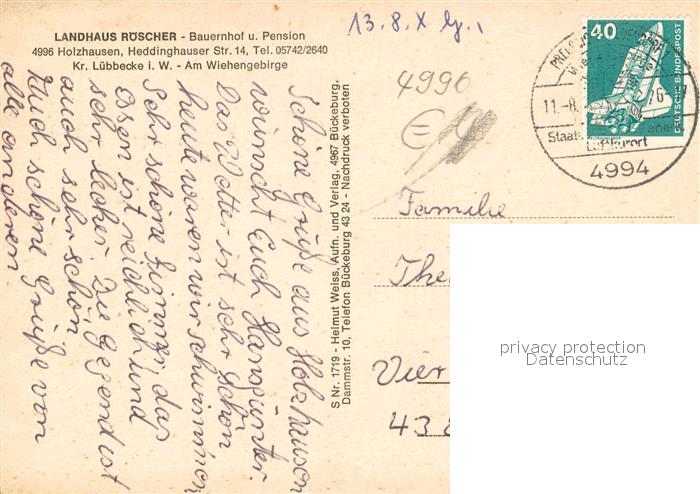 LANDHAUS RÖSCHER - Bauernhof u. Pension
4996 Holzhausen, Heddinghauser Str. 14, Tel. 05742/2640
Kr. Lübbecke i. W. - Am Wiehengebirge
13.8.X
4996
Schöne Grüße aus Holzhausen
wünscht Euch Hansgünter.
Das Wetter ist sehr schön
heute waren wir schwimmen
Sehr schöne Zimmer, das
Essen ist reichlich und
sehr lecker. Die Gegend ist
auch sehr schön
Euch schöne Grüße von
alle anderen
S Nr. 1719 - Helmut Weiss, Aufn. und Verlag, 4967 Bückeburg,
Dammstr. 10, Telefon Bückeburg 43 24 - Nachdruck verboten
40
DEUTSCHE BUNDESPOST
11.-8.
76-
Staatl.
Luftkurort
4994
Familie
The
Vier
43
privacy protection
Datenschutz